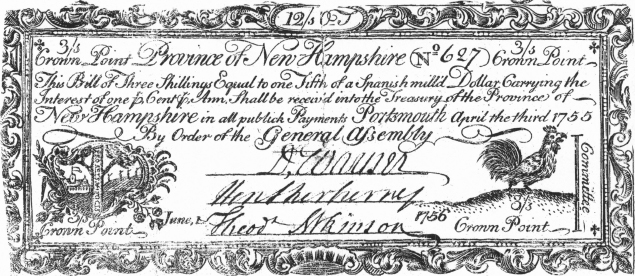 12/s O T
3/s Province of New Hampshire (No 627) 3/s
Crown Point Crown Point
This Bill of Three Shillings Equal to one Fifth of a Spanish mill'd Dollar Carrying the
Interest of one p. Cent p. Ann. Shall be receiv'd into the Treasury of the Province of
New Hampshire in all publick Payments Portsmouth April the third 1755
By Order of the General Assembly
Committee
June, 1 Theod Atkinson 1756
3/s 3/s
Crown Point Crown Point